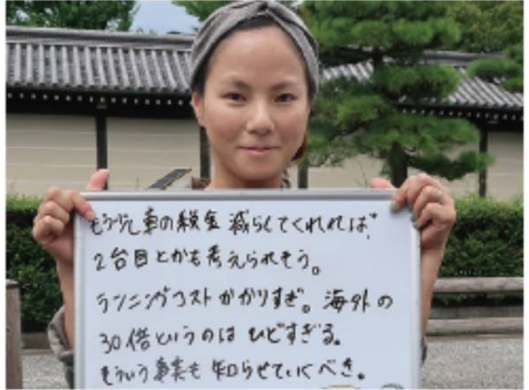 もう少し車の税金 減らしてくれれば、
2台目とかも考えられそう。
ランニングコストかかりすぎ。海外の
30倍というのは ひどすぎる。
そういう事実も 知らせていくべき。